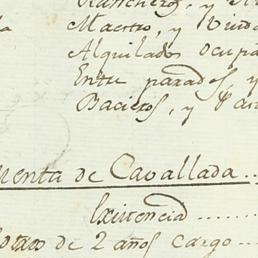 Rancheros, y
Maestro, y Viud
Alquilados ocupa
Entre parados y
Bacieros, y
menta de Cavallada..
Existencia.......
Potro de 2 años cargo....